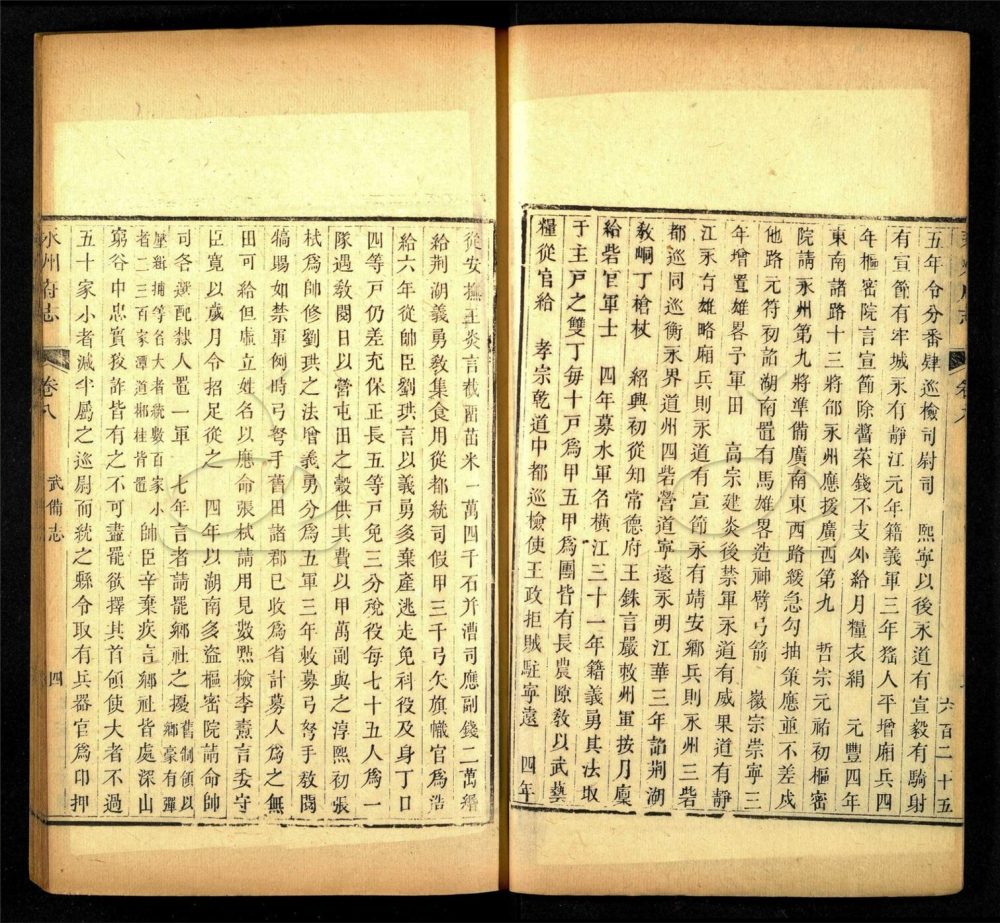 五年令分番肄巡檢司尉司　熙寧以後永道有宣毅有騎射
有宣節有牢城永有靜江元年籍義軍三年猺人平增廂兵四
年樞密院言宣節除醬菜錢不支外給月糧衣絹　元豐四年
東南諸路十三將邵永州應援廣西第九　哲宗元祐初樞密
院請永州第九將準備廣南東西路緩急勾抽策應並不差戍
他路元符初詔湖南置有馬雄畧造神臂弓箭　徽宗崇寧三
年增置雄畧予軍田　高宗建炎後禁軍永道有威果道有靜
江永有雄略廂兵則永道有宣節永有靖安鄉兵則永州三砦
都巡同巡衡永界道州四砦營道寧遠永明江華三年詔荆湖
敎峒丁槍杖　紹興初從知常德府王銖言嚴敕州軍按月廩
給砦官軍士　四年募水軍名橫江三十一年籍義勇其法取
于主戸之雙丁每十戸爲甲五甲爲團皆有長農隙敎以武藝
糧從官給　孝宗乾道中都巡檢使王政拒賊駐寧遠　四年
六百二十五
從安撫王炎言截苗米一萬四千石并漕司應副錢二萬緡
給荆湖義勇敎集食用從都統司假甲三千弓矢旗幟官爲浩
給六年從帥臣劉珙言以義勇多棄產逃走免科役及身丁口
四等戸仍差充保正長五等戸免三分稅役每七十五人爲一
隊遇敎閱日以營屯田之穀供其費以甲萬副與之淳熙初張
栻爲帥修劉珙之法增義勇分爲五軍三年敕募弓弩手敎閱
犒賜如禁軍例時弓弩手舊田諸郡已收爲省計募人爲之無
田可給但虛立姓名以應命張栻請用見數㸃檢李燾言委守
臣寬以歲月令招足從之　四年以湖南多盜樞密院請命帥
司各選配隸人置一軍　七年言者請罷鄉社之擾舊制領以鄉豪有彈
壓緝捕等名大者統數百家小者二三百家潭道郴桂皆置帥臣辛棄疾言鄉社皆處深山
窮谷中忠實狡詐皆有之不可盡罷欲擇其首領使大者不過
五十家小者減半屬之巡尉而統之縣令取有兵器官爲印押
永州府志　卷八　武備志　四